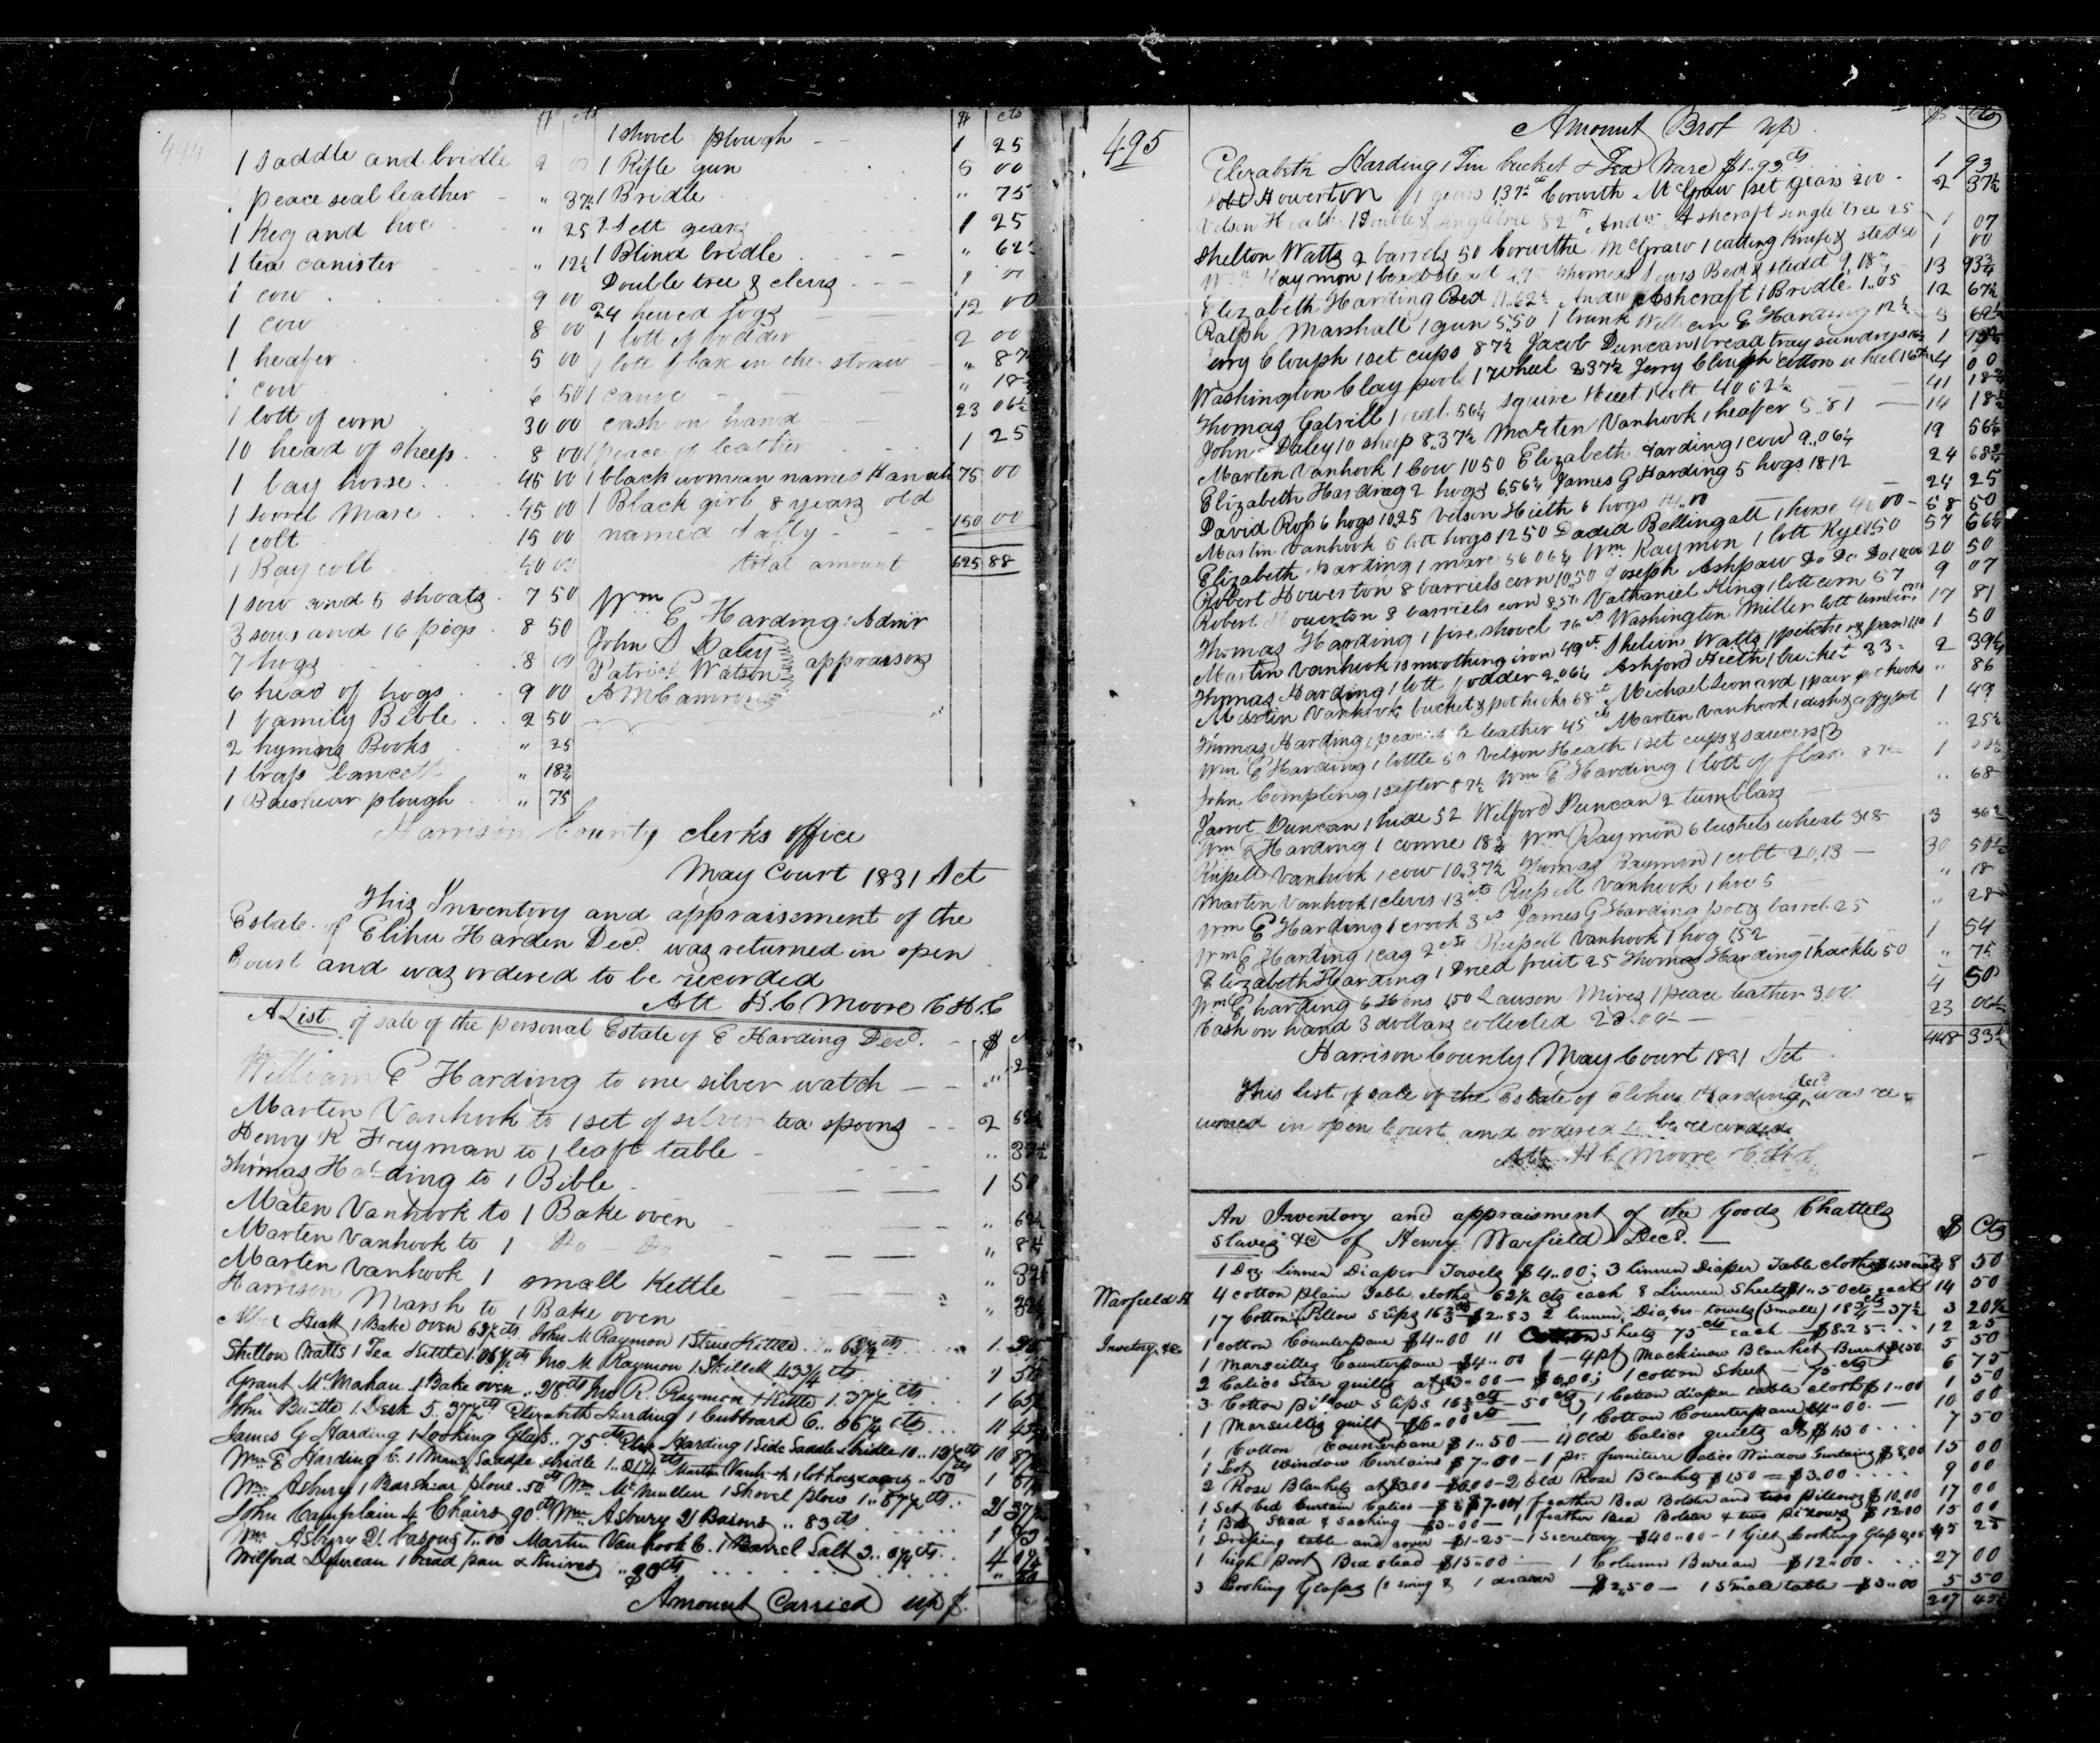 494
$ cts
1 Saddle and bridle 2 00
1 peace seal leather " 37½
1 Keg and hoe " 25
1 tea canister " 12½
1 cow 9 00
1 cow 8 00
1 heafer 5 00
1 cow 6 50
1 lott of corn 30 00
10 head of sheep 8 00
1 bay horse 45 00
1 sorrel Mare 45 00
1 colt 15 00
1 Bay colt 40 00
1 sow and 5 shoats 7 50
3 sows and 16 pigs 8 50
7 hogs 8 00
6 head of hogs 9 00
1 family Bible 2 50
2 hymns Books " 25
1 lancett " 18¾
1 Barshear plough " 75
$ cts
1 shovel plough 1 25
1 Rifle gun 5 00
1 Bridle " 75
2 Sett gears 1 25
1 Blind bridle " 62½
Double tree & clevis
24 hewed logs 12 00
1 lott of fodder 2 00
1 lott flax in the straw " 87½
1 canoe " 18¾
cash on hand 23 06¼
1 peace of leather 1 25
1 black woman named Hanah 75 00
1 Black girl 8 years old
named Sally 150 00
total amount 625 88
Wm E Harding Admr
John S Daley
Patrick Watson appraisors
A McCamron
Harrison County clerks office
May Court 1831 Sct
This Inventory and appraisement of the
Estate of Elihu Harden Decd. was returned in open
Court and was ordered to be recorded
Att H. C. Moore C H. C
A List of sale of the personal Estate of E Harding Decd. $
William E Harding to one silver watch
Marten Vanhook to 1 set of silver tea spoons 2 62½
Henry K Fryman to 1 leaft table " 37½
Thomas Harding to 1 Bible 1 50
Maten Vanhook to 1 Bake oven " 62½
Marten Vanhook to 1 Do Do
Marten Vanhook 1 small Kettle
Harrison Marsh to 1 Bake oven
Heath 1 Bake oven 63½ cts John M Raymon 1 Stew Kettle 1
Shelton Watts 1 Tea Kettle 1.06¼ cts Jno M Raymon 1 Skillett 43¾ cts 1 50
Grant McMahan 1 Bake oven 28 cts Jno R. Raymon 1 Kettle 1.37½ cts 1 65½
John 1 Desk 5.37½ cts Elizabeth Harding 1 Cubboard 6..06¼ cts 11 43¾
James G Harding 1 Looking Glass 75 cts Eliz Harding 1 Side Saddle & bridle 10..12½ cts 10 87½
Wm E Harding 1 Mans Saddle & bridle 1.01¼ cts Martin Vanhook 1 lot 50 cts 1
Wm Asbury 1 Barshear plow 50 cts Wm McMullen 1 Shovel plow 1..87½ cts 2 37½
John Camplain 4 Chairs 90 cts Wm Asbury 2 Basons 83 cts 1 73
Wm Asbury 2 1..00 Martin Vanhook 1 Barrel Salt 3..01¼ cts 4 01¼
Wilford Duncan 1 bread pan & Knives " 80 cts
Amount Carried up $
495
Amount Brot up $ cts
Elizabeth Harding 1 Tin bucket & Tea Ware $1.93 cts 1 93
Robt Howerton 1 gears 137½ cts Corwith McGraw 1 set gears 200 2 37½
Velson Heath 1 Double & singletree 82 cts Andw Ashcraft single tree 25 1 07
Shelton Watts 2 barrels 50 Corwithe McGraw 1 cutting Knife & 1 00
Wm Raymon 1 bedstead Thomas Bed & stedd 9.18¾ 13 93¾
Elizabeth Harding Bed 11.62½ Andw Ashcraft 1 Bridle 1.05 12 67½
Ralph Marshall 1 gun 5.50 1 trunk William E Harding 12½ 5 62½
Jerry Clouph 1 set cups 87½ Jacob Duncan 1 bread tray sundrys 1
Washington Claypool 1 Wheel 237½ Jerry Clough cotton wheel 4 00
Thomas 1 reel 56¼ Squire Hieet 1 colt 40 62½ 41 18¾
John Daley 10 sheep 8.37½ Marten Vanhook 1 heafer 5.81 14 18½
Marten Vanhook 1 Cow 10 50 Elizabeth Harding 1 cow 9..06¼ 19 56¼
Elizabeth Harding 2 hogs 6.56¼ James G Harding 5 hogs 18 12 24 68¾
David Ross 6 hogs 10.25 Velson Hieth 6 hogs 14.00 24 25
Martin Vanhook 5 lott hogs 12 50 David Bellingall 1 horse 46 00 58 50
Elizabeth Harding 1 mare 56 06¼ Wm Raymon 1 lott Rye 1.50 57 56¼
Robert Howerton 8 barriels corn 10.50 Joseph Ashpaw Do Do Do 20 50
Robert Howerton 8 barriels corn 8.50 Nathaniel King 1 lott corn 57 9 07
Thomas Harding 1 fire shovel 76 cts Washington Miller lott timber 17 81
Martin Vanhook 1 smoothing iron 49 cts Shelton Watts 1 pitcher & pan 1 50
Thomas Harding 1 lott fodder 2.06¼ Ashford Hieth 1 bucket 33 2 39¼
Martin Vanhook bucket & pot hooks 68 cts Michael Leonard 1 pair pot hooks " 86
Thomas Harding 1 peace leather 45 cts Marten Vanhook 1 dish & coffy pot 1 49
Wm E Harding 1 bottle Velson Heath 1 set cups & saucers 13 " 25½
John Compling 1 sifter 87½ Wm E Harding 1 lott of flax 87½ 1
Jarrot Duncan 1 hide 52 Wilford Duncan 2 tumblars " 68
Wm E Harding 1 connue 18¾ Wm Raymon 6 bushels wheat 318 3 36¾
Russell Vanhook 1 cow 10.37½ Thomas Raymon 1 colt 20.13 30 50½
Marten Vanhook 1 clevis 13 cts Russell Vanhook 1 hoe 5 " 18
Wm E Harding 1 crook 3 cts James G Harding pot & barrel 25 " 28
Wm E Harding 1 cag 2 cts Russell Vanhook 1 hog 1.52 1 54
Elizabeth Harding 1 Dried fruit 25 Thomas Harding 1 hackle 50 " 75
Wm E harding 6 Hens 1.50 Lauson Mires 1 peace leather 3.00 4 50
Cash on hand 3 dollars collected 23 06¼
448 33½
Harrison County May Court 1831 Sct
This list of sale of the Estate of Elihu Harding decd was re-
turned in open Court and ordered to be recorded
Att H C Moore C H C
Warfield H
Invetory &c
An Inventory and appraisment of the Goods Chattels
Slaves &c of Henry Warfield Decd. $ Cts
1 Doz Linnen Diaper Towels $4..00; 3 linnen Diaper Table cloths $1.50 each 8 50
4 cotton plain Table cloths 62½ cts each 8 Linnen Sheets $1..50 cts each 14 50
17 Cotton Pillow Slips 16⅔ cts $2..83 2 linnen Diaper towels (Smalle) 18¾ cts 37½ 3 20½
1 cotton Counterpane $4..00 11 Cotton Sheets 75 cts each $8..25 12 25
1 Marseilles Counterpane $4..00 1 4 pt Mackinaw Blanket Burnt $1.50 5 50
2 Calico Star quilts at $3..00 $6.00; 1 cotton Sheet 75 cts 6 75
3 Cotton pillow slips 16⅔ cts 50 cts 1 Cotton diaper table cloth $1..00 1 50
1 Marseilles quilt $6..00 cts 1 Cotton Counterpane $4..00 10 00
1 Cotton Counterpane $1..50 4 Old Calico quilts at $1.50 7 50
1 Lot Window Curtains $7..00 1 pr. furniture Calico Window Curtains $8.00 15 00
2 Rose Blankets at $3.00 $6.00 2 Old Rose Blankets $1.50 $3.00 9 00
1 Set bed Curtain Calico $7.00 1 feather Bed Bolster and two pillows $10.00 17 00
1 Bed Stead & sacking $3..00 1 feather Bed Bolster & two pillows $12.00 15 00
1 Dressing table and cover $1..25 1 Secretary $40..00 1 Gilt Looking Glass 4.00 45 25
1 high post Bed stead $15..00 1 Column Bureau $12..00 27 00
3 Looking Glasses (2 swing & 1 drawer $2..50 1 Small table $3..00 5 50
207